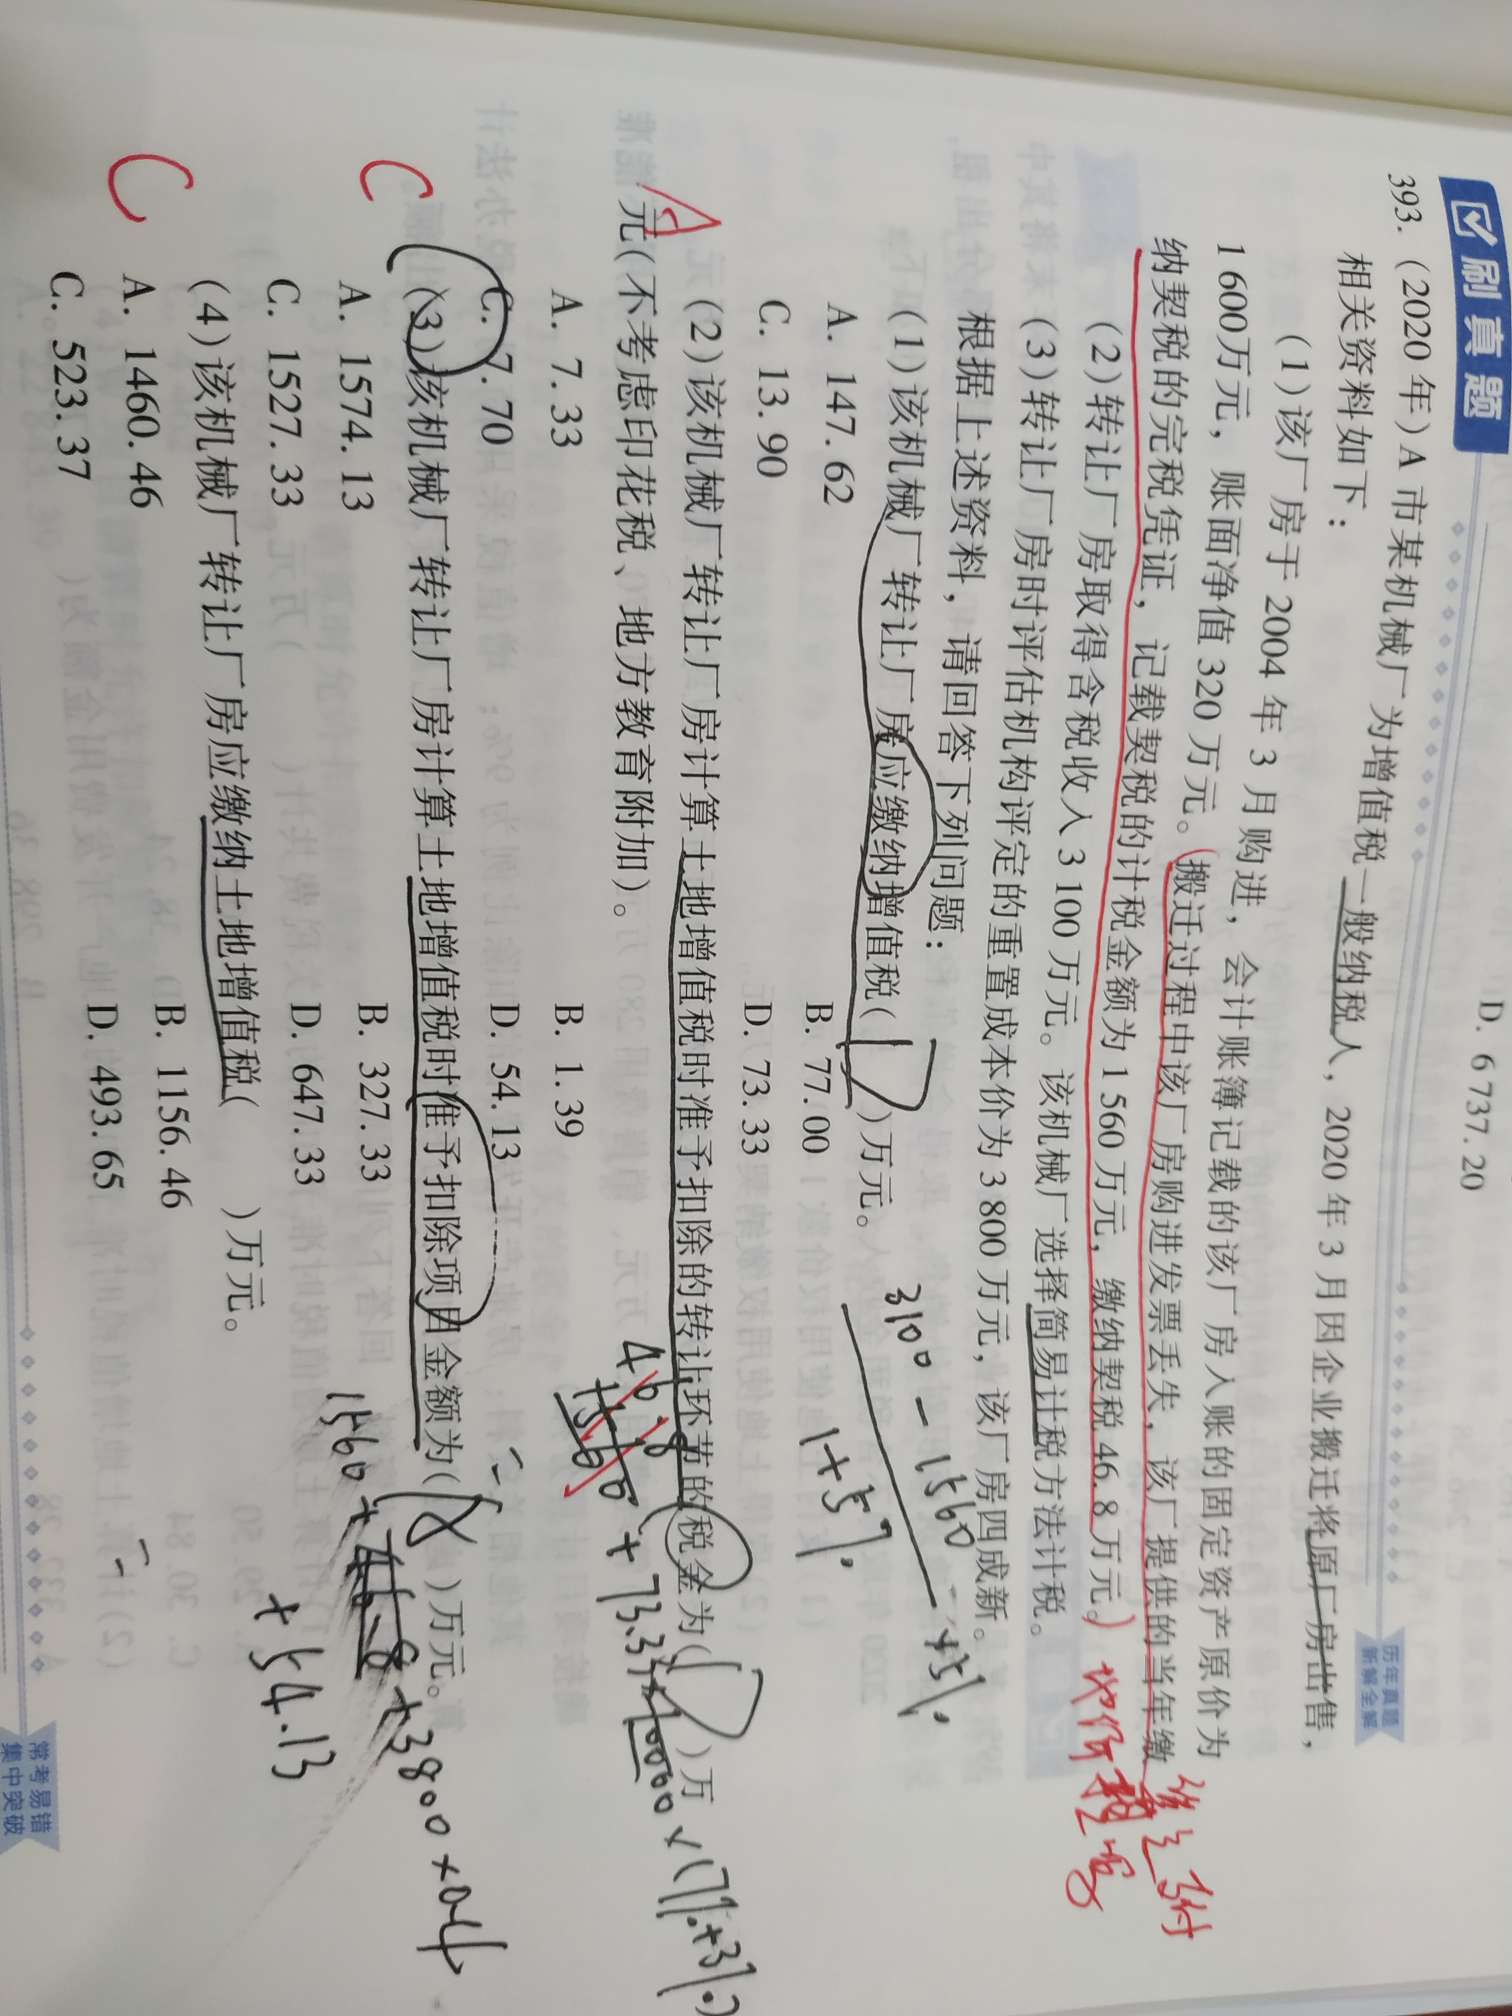 D. 6 737. 20
刷真题
历年真题
新解全解
393. (2020 年)A 市某机械厂为增值税一般纳税人，2020 年 3 月因企业搬迁将原厂房出售，
相关资料如下：
(1)该厂房于 2004 年 3 月购进，会计账簿记载的该厂房入账的固定资产原价为
1 600万元，账面净值 320 万元。搬迁过程中该厂房购进发票丢失，该厂提供的当年缴
纳契税的完税凭证，记载契税的计税金额为 1 560 万元，缴纳契税 46. 8 万元。
(2)转让厂房取得含税收入 3 100 万元。该机械厂选择简易计税方法计税。
(3)转让厂房时评估机构评定的重置成本价为 3 800 万元，该厂房四成新。
根据上述资料，请回答下列问题：
(1)该机械厂转让厂房应缴纳增值税(　　)万元。
3100 - 1560
1+5%
×5%
A. 147. 62
B. 77. 00
C. 13. 90
D. 73. 33
(2)该机械厂转让厂房计算土地增值税时准予扣除的转让环节的税金为(　　)万
元(不考虑印花税、地方教育附加)。
A
A. 7. 33
B. 1. 39
C. 7. 70
D. 54. 13
(3)该机械厂转让厂房计算土地增值税时准予扣除项目金额为(　　)万元。
C
A. 1574. 13
B. 327. 33
C. 1527. 33
D. 647. 33
+54.13
(4)该机械厂转让厂房应缴纳土地增值税(　　)万元。
C
A. 1460. 46
B. 1156. 46
C. 523. 37
D. 493. 65
常考易错
集中突破